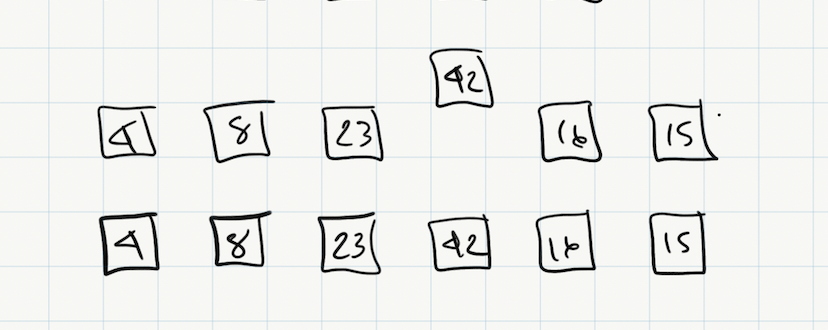 42
4 8 23 16 15
4 8 23 42 16 15